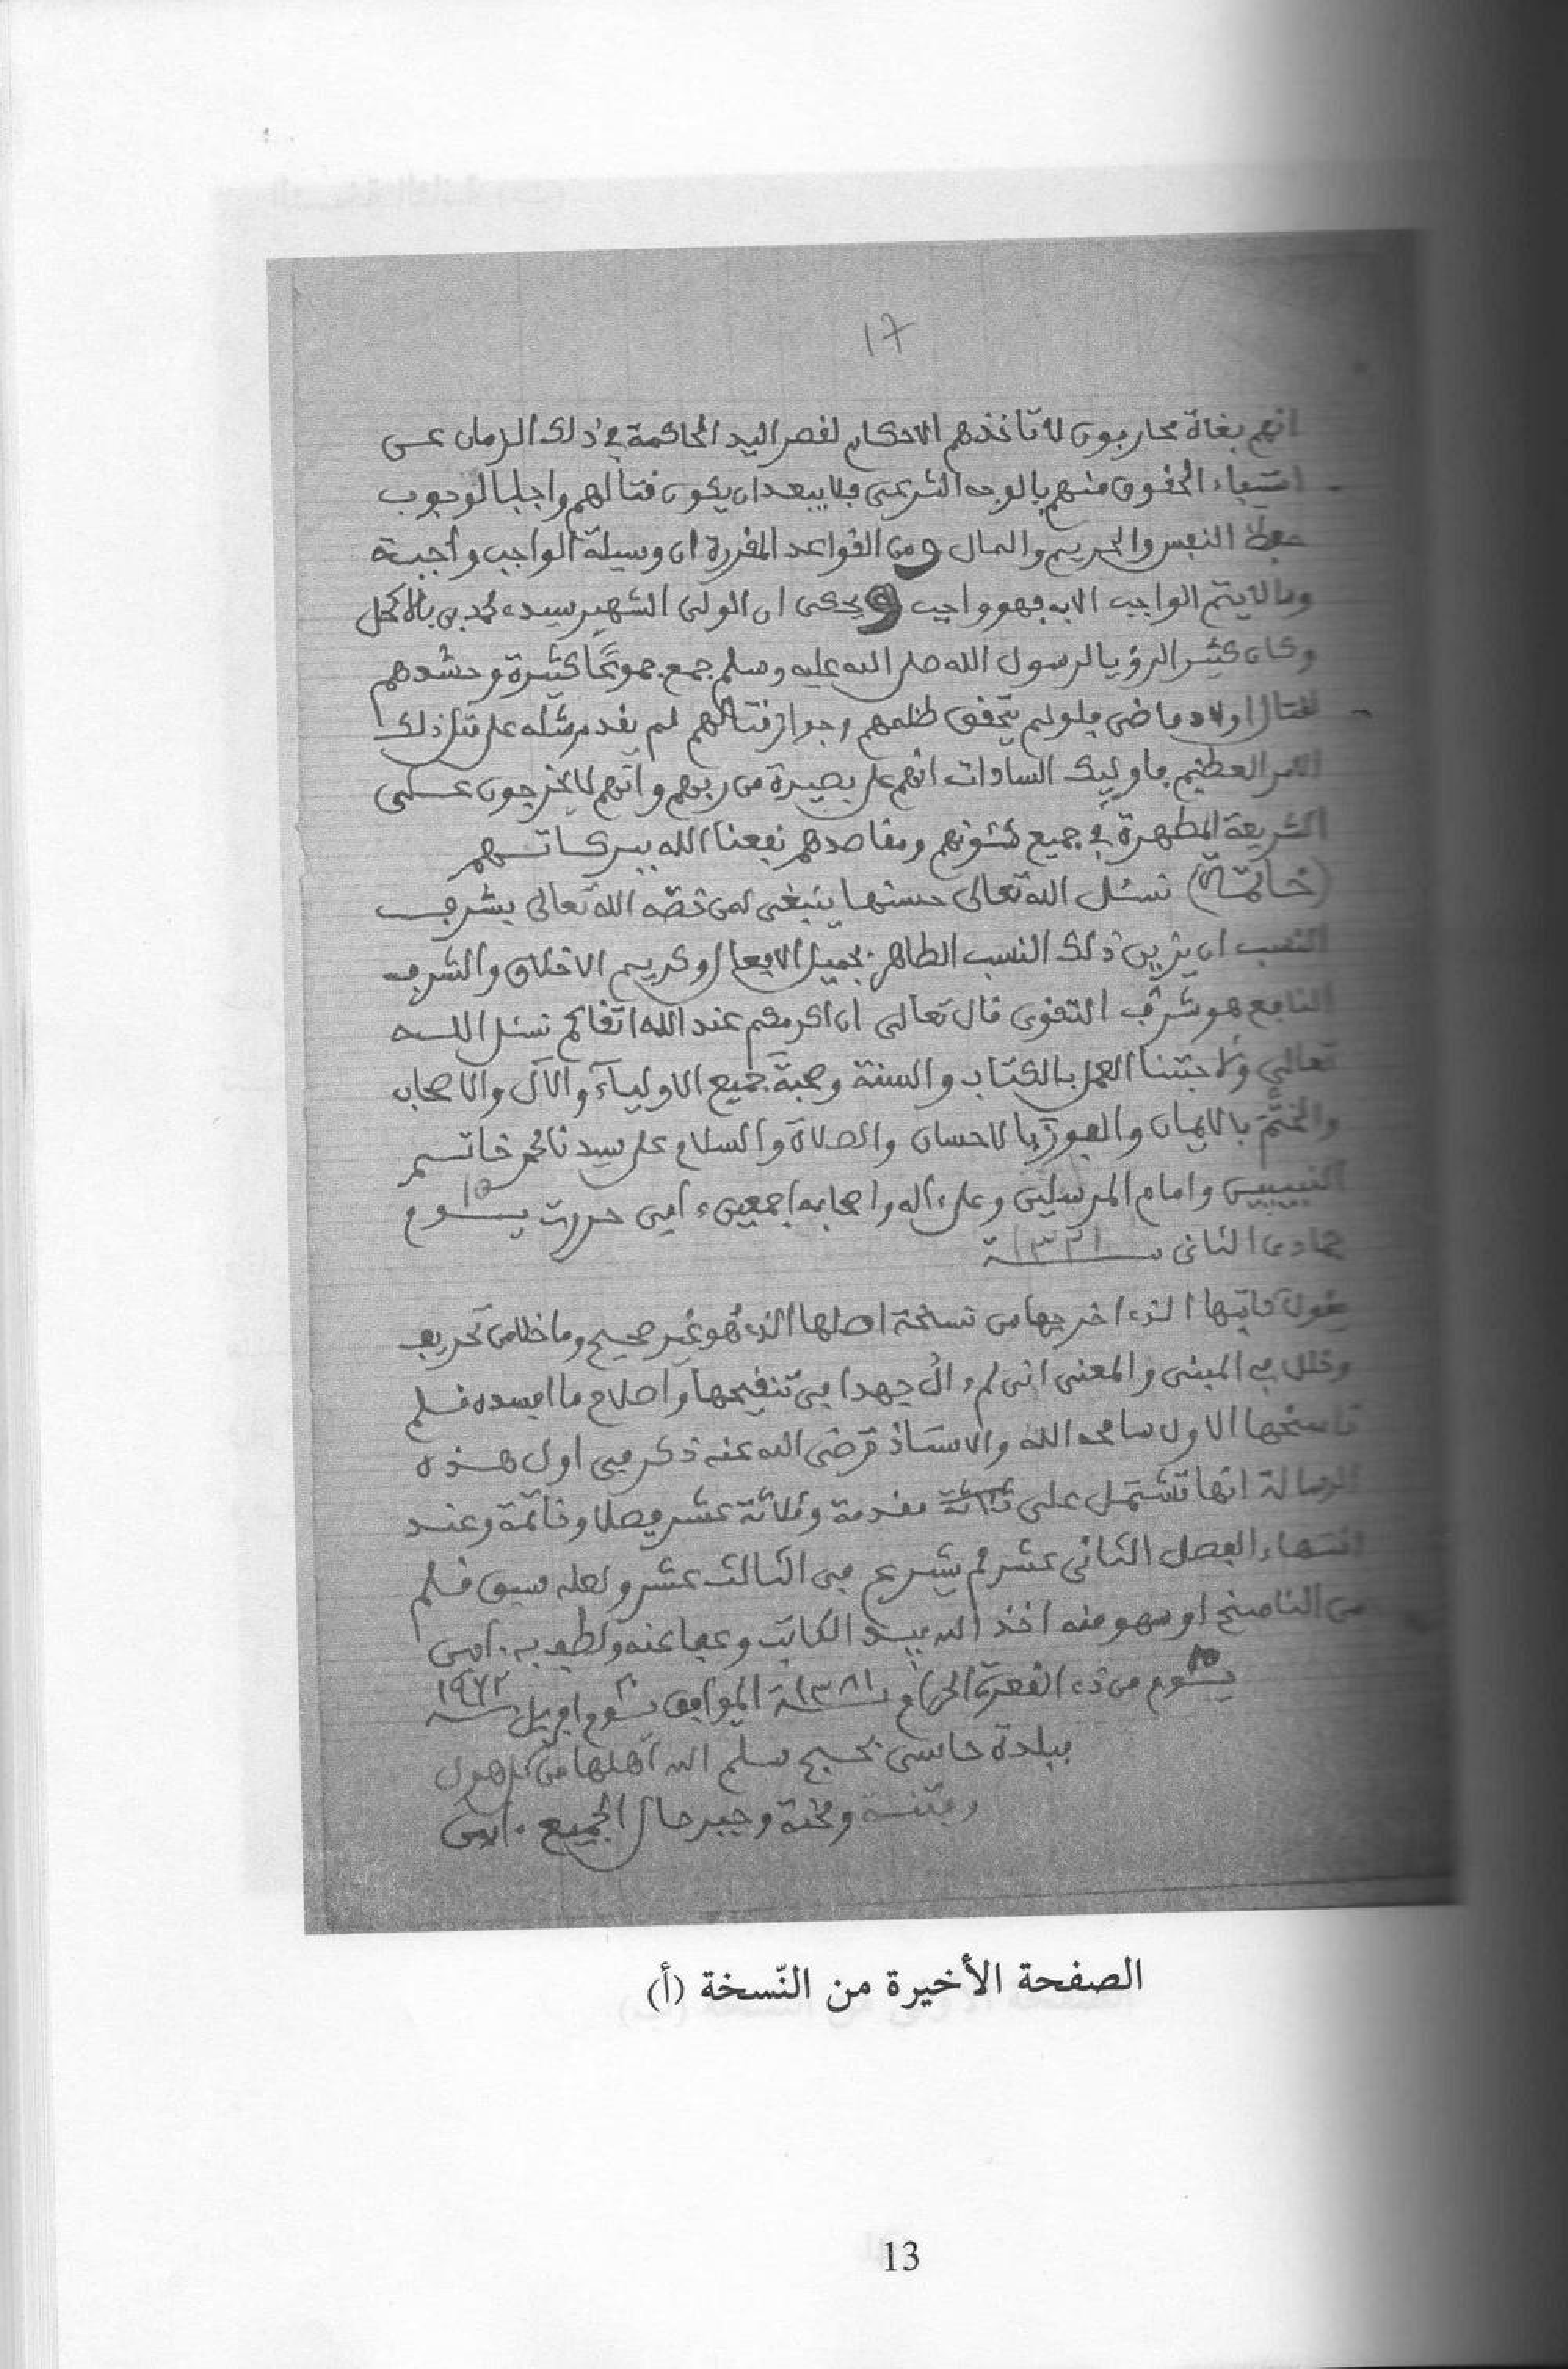 ١٦
انهم بغاة محاربون لا تاخذهم الاحكام لقصر اليد الحاكمة في ذلك الزمان عن
استيفاء الحقوق منهم بالوجه الشرعي فلا يبعد ان يكون قتالهم واجبا لوجوب
حفظ النفس والحريم والمال ومن القواعد المقررة ان وسيلة الواجب واجبة
وما لا يتم الواجب الا به فهو واجب ويحكى ان الولى الشهير سيدى محمد بن بالاكحل
وكان كثير الرؤيا لرسول الله صلى الله عليه وسلم جمع جموعًا كثيرة وحشدهم
لقتال اولاد ماضى فلو لم يتحقق ظلمهم وجواز قتالهم لم يقدم مثله على مثل ذلك
الامر العظيم فاوليك السادات انهم على بصيرة من ربهم وانهم لا يخرجون عن
الشريعة المطهرة في جميع شئونهم ومقاصدهم نفعنا الله ببركاتهم
(خاتمة) نسئل الله تعالى حسنها ينبغى لمن خصه الله تعالى بشرف
النسب ان يزين ذلك النسب الطاهر بجميل الافعال وكريم الاخلاق والشرف
النافع هو شرف التقوى قال تعالى ان اكرمكم عند الله اتقاكم نسئل الله
تعالى العمل بالكتاب والسنة ومحبة جميع الاوليآء والآل والاصحاب
والختم بالايمان والفوز بالاحسان والصلاة والسلام على سيدنا محمد خاتم
النبيين وامام المرسلين وعلى ءاله واصحابه اجمعين ءامين حررت يوم ١٥
جمادى الثانى سنة ١٣٣١
يقول كاتبها الذى اخرجها من نسخة اصلها الذى هو غير صحيح وما خلا من تحريف
وخلل في المبنى والمعنى انى لم ءال جهدا في تنقيحها واصلاح ما افسده قلم
ناسخها الاول سامحه الله والاستاذ رضى الله عنه ذكر في اول هذه
الرسالة انها تشتمل على مقدمة وثلاثة عشر فصلا وخاتمة وعند
انتهاء الفصل الثانى عشر لم يشرع في الثالث عشر ولعله سبق قلم
من الناسخ او سهو منه اخذ الله بيد الكاتب وعفا عنه ولطف به ءامين
يوم ٢٥ من ذى القعدة الحرام سنة ١٣٨١ الموافق يوم ٣٠ افريل سنة ١٩٦٢
ببلدة حاسى بحبح سلم الله اهلها من كل هول
وفتنة ومحنة وجبر حال الجميع ءامين
الصفحة الأخيرة من النّسخة (أ)
13